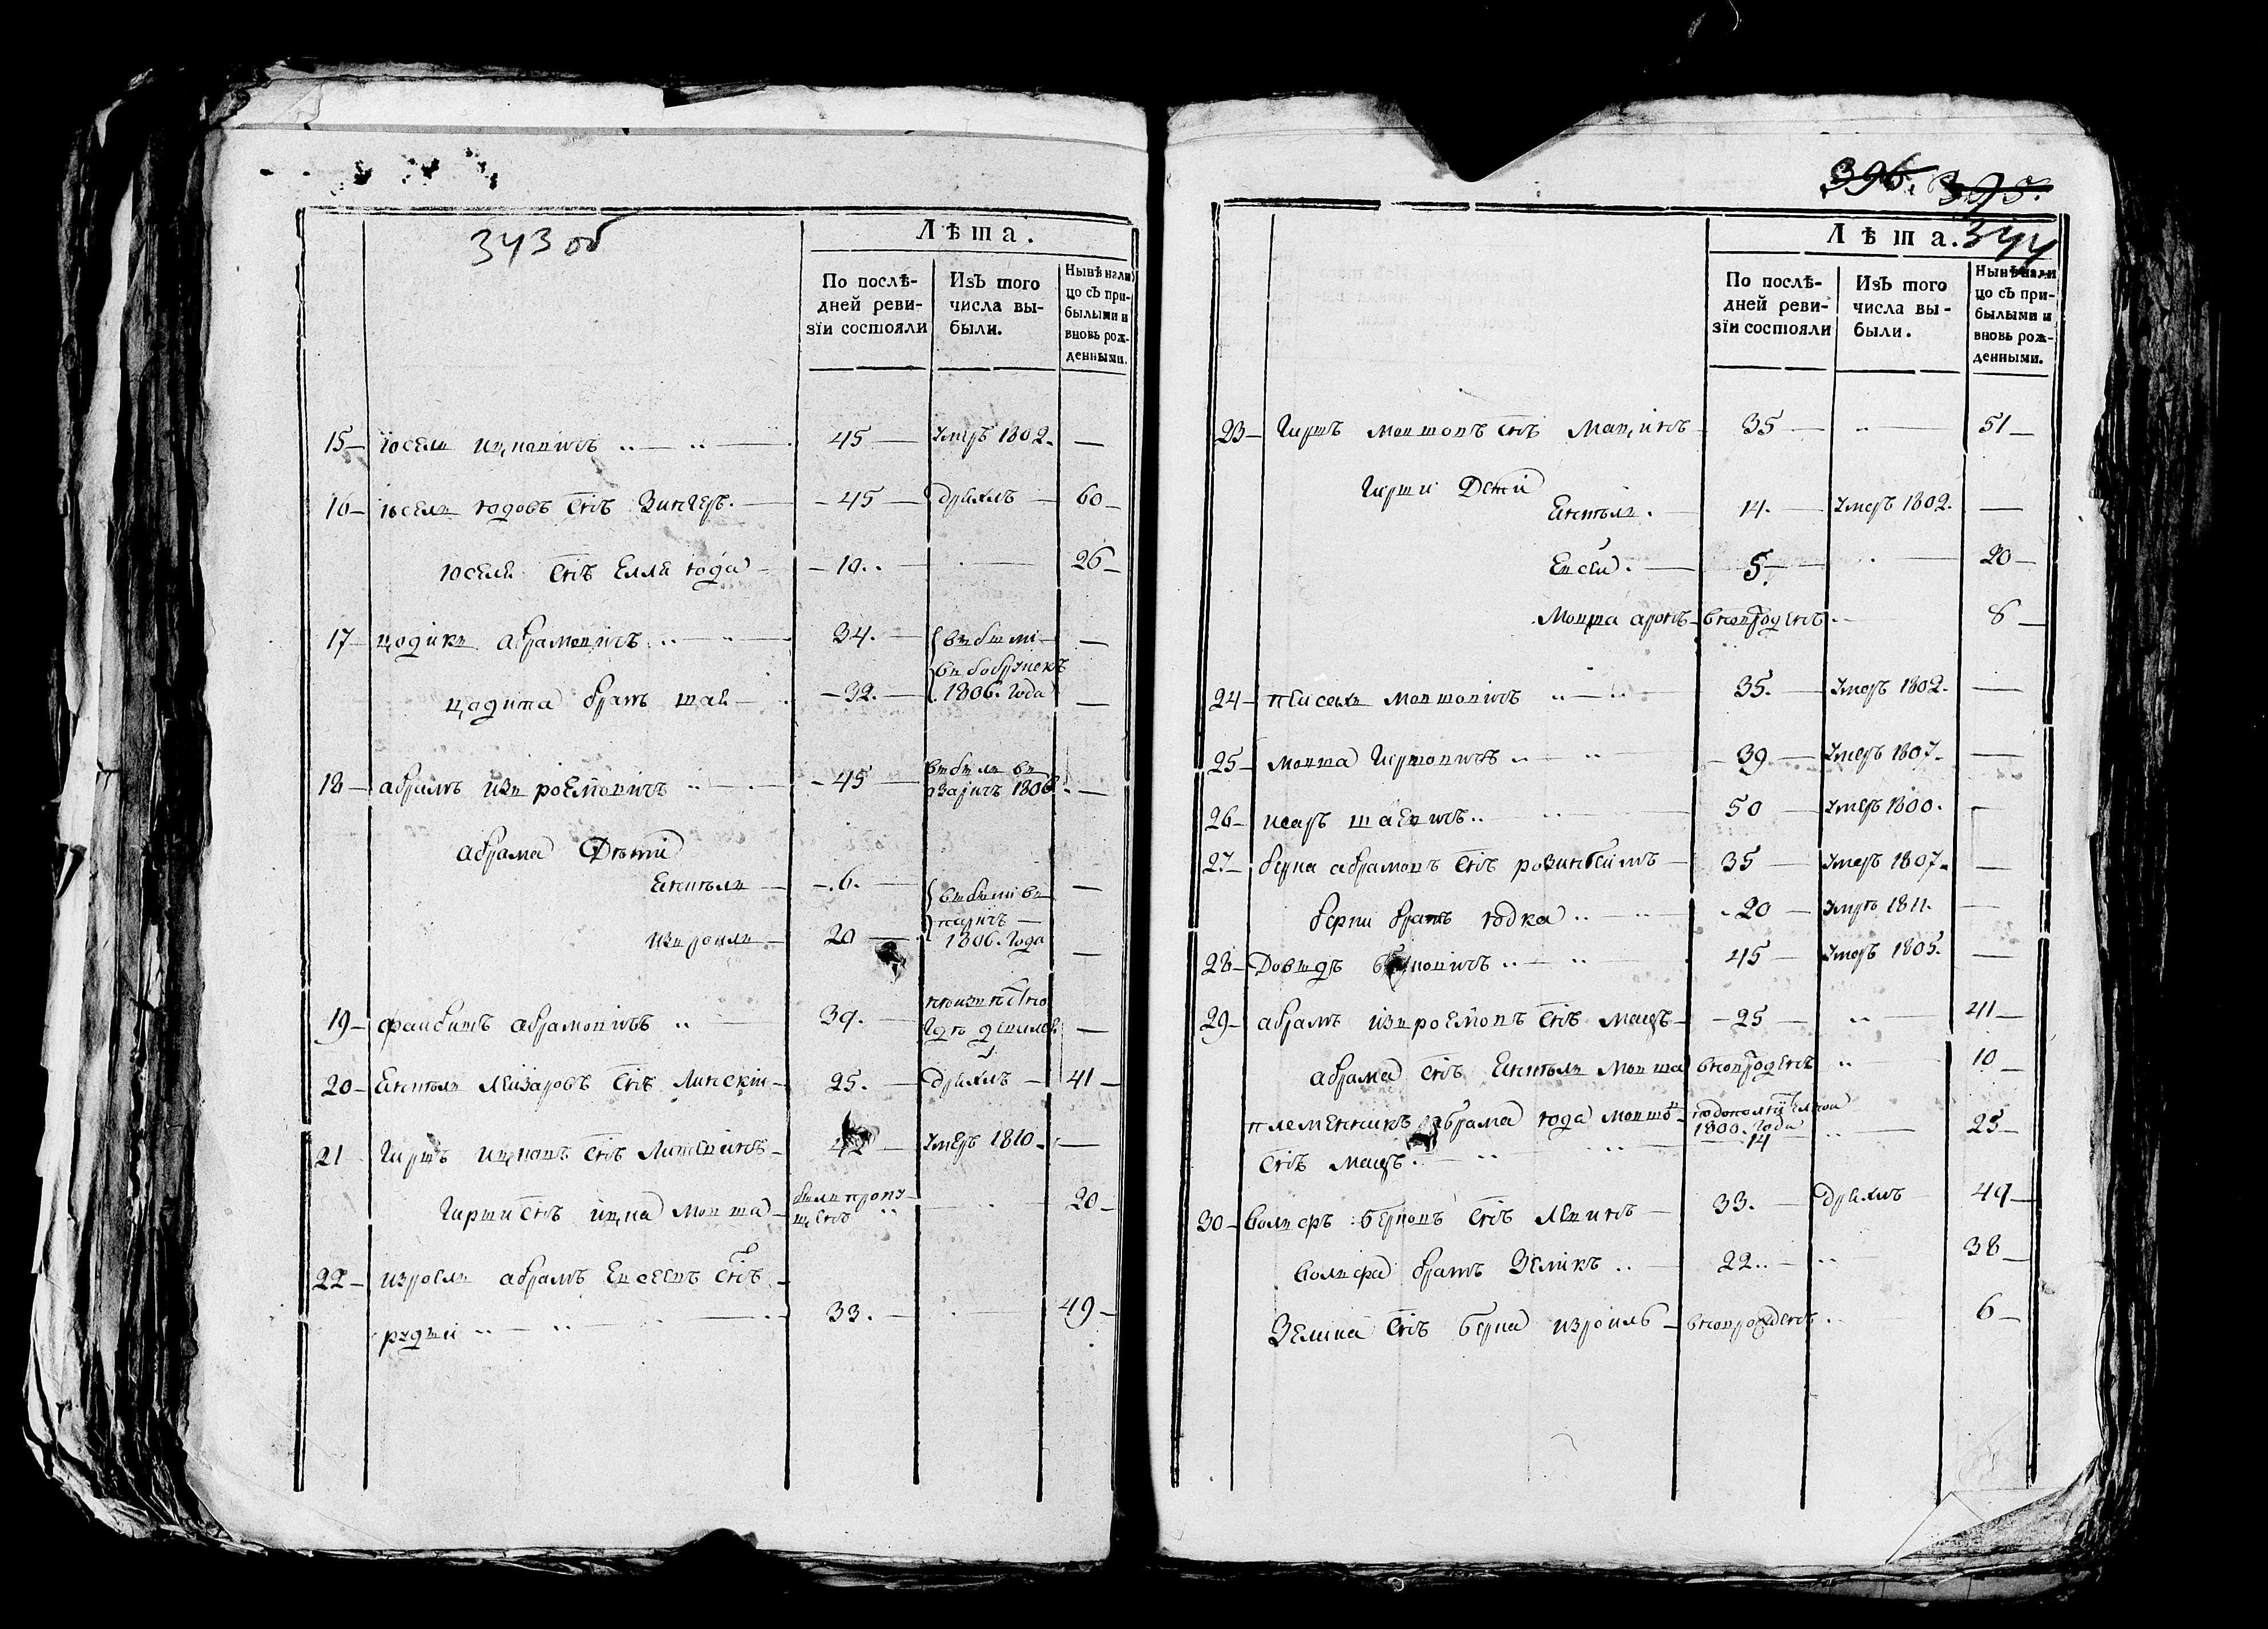 343 об
Лѣта.
По послѣ-
дней реви-
зїи состояли
Изъ того
числа вы-
были.
Нынѣ нали
цо съ при-
былыми и
вновь рож-
денными.
15 — юсель ицковичъ 45 умеръ 1802. —
16 — юсель юдовъ снъ Зингеръ. 45 дряхлъ 60
юселя снъ Елля юда 10. 26
17 — цодикъ абрамовичъ 34. выбыли —
въ бобруйскъ
цодика братъ шая 32. 1806. Года —
18 — абрамъ изроелювичъ 45 выбылъ въ
1806 —
абрама Дѣти
Ен 6. выбыли въ —
изроиль 20 1806. Года —
19 — фаибишъ абрамовичъ 39. неизвѣстно —
Гдѣ
20 — Лейзаровъ снъ Линскій 25. дряхлъ 41
21 Гиршъ ицковъ снъ 42 умеръ 1810. —
Гирши снъ ицка мовша были пропу-
щенъ 20
22 — изроель абрамъ Евсеевъ снъ
33. 49
396. 395.
344
Лѣта.
По послѣ-
дней реви-
зїи состояли
Изъ того
числа вы-
были.
Нынѣ нали
цо съ при-
былыми и
вновь рож-
денными.
23 — Гиршъ мовшовъ снъ 35 51
Гирши Дети
14. умеръ 1802. —
Евсей. 5. 20
Мовша аронъ вновьрожденъ 8
24 — пейсахъ мовшовичъ 35. умеръ 1802. —
25 — мовша Гиршовичъ 39 умеръ 1807. —
26 — исаръ шаевичъ 50 умеръ 1800. —
27. — берка абрамовъ снъ розин 35 умеръ 1807. —
берки братъ юдка 20 умеръ 1811. —
28 — Довыдъ берковичъ 45 умеръ 1805. —
29 — абрамъ изроелювъ снъ 25 41
абрама снъ мовша вновьрожденъ 10
племенникъ абрама юда мовшо- подополнительной
1800. Года
14 25
снъ
30 — вольфъ берковъ снъ левинъ 33. дряхлъ 49
вольфа братъ Зеликъ 22. 38
Зелика снъ берка изроиль вновьрожденъ 6